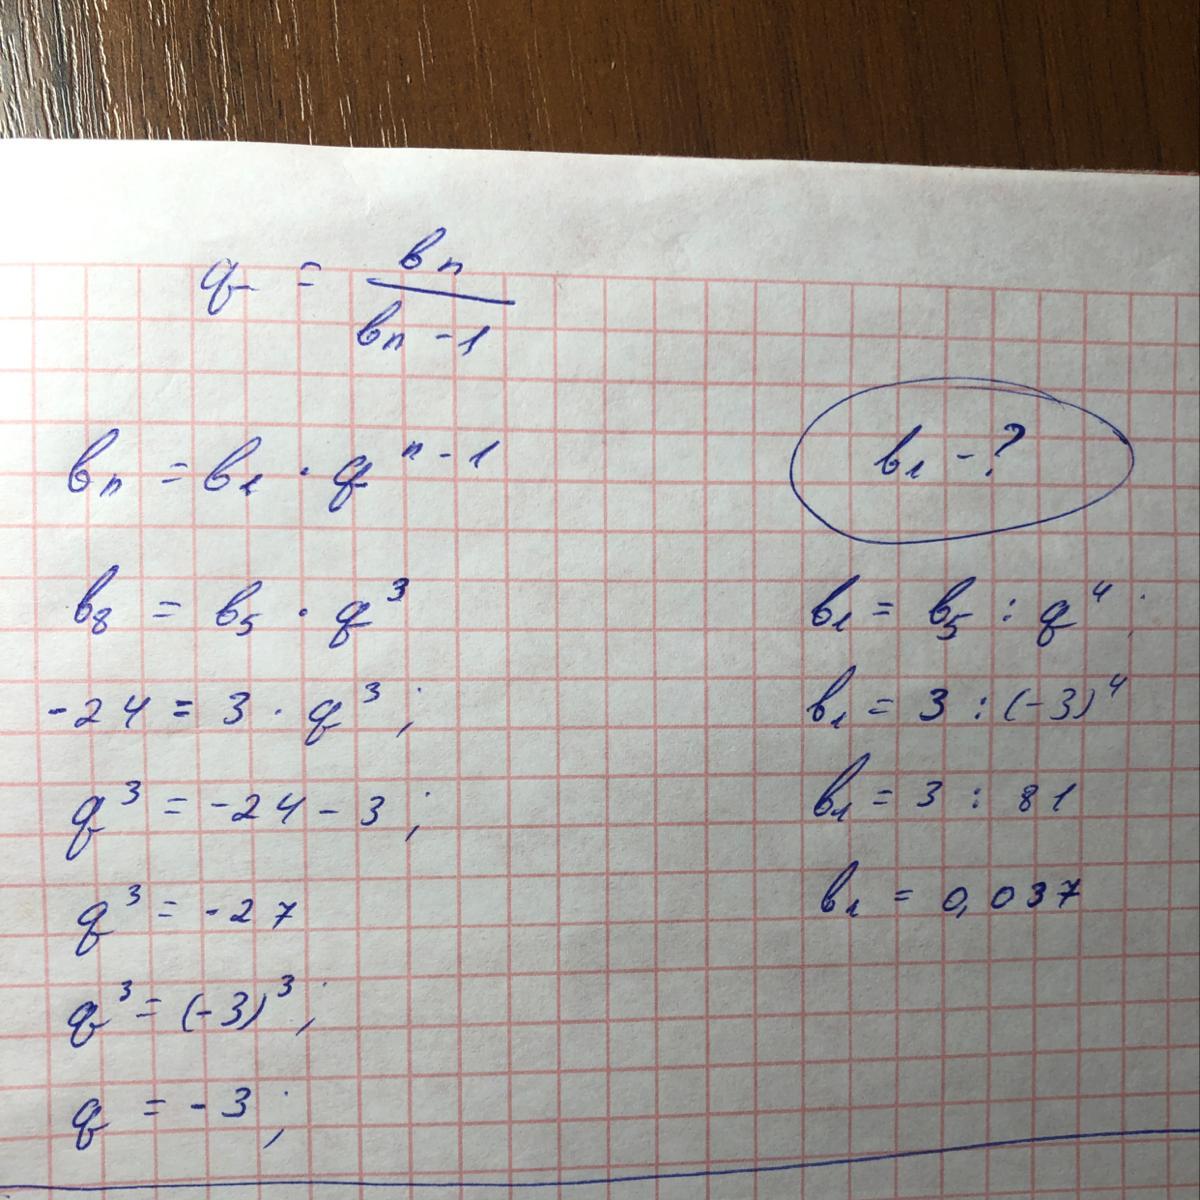 q = bn / bn-1
bn = b1 · q^n-1
b8 = b5 · q^3
-24 = 3 · q^3;
q^3 = -24-3;
q^3 = -27
q^3 = (-3)^3;
q = -3;
b1 - ?
b1 = b5 : q^4;
b1 = 3 : (-3)^4
b1 = 3 : 81
b1 = 0,037